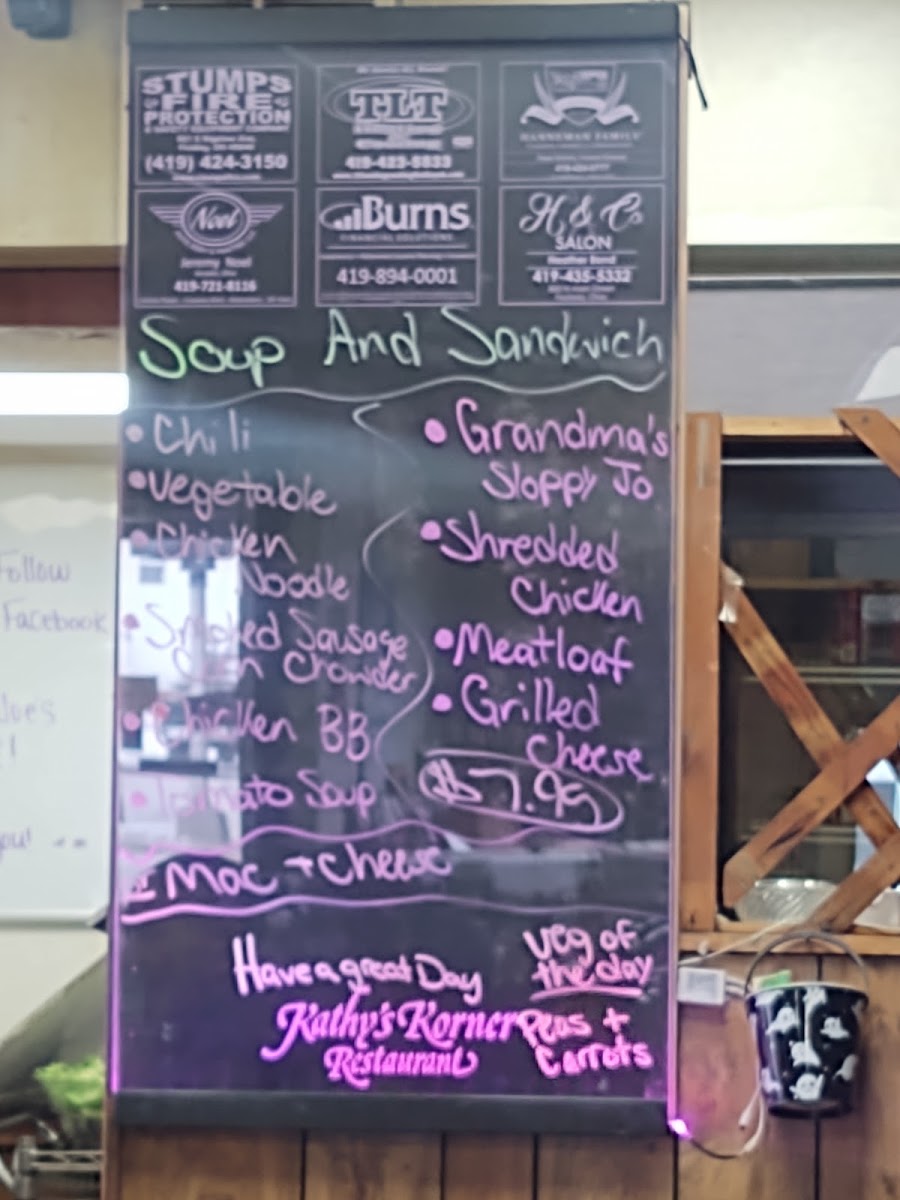 STUMPS
FIRE
PROTECTION
(419) 424-3150
TLT
419-423-5833
HANNEMAN FAMILY
Noel
Jeremy Noel
419-721-8116
Burns
FINANCIAL SOLUTIONS
419-894-0001
H & Co
SALON
Heather Bond
419-435-5332
Soup And Sandwich
• Chili
• Vegetable
• Chicken
Noodle
• Smoked Sausage
Corn Chowder
• Chicken BB
• Tomato Soup
• Grandma's
Sloppy Jo
• Shredded
Chicken
• Meatloaf
• Grilled
Cheese
$7.99
Mac + Cheese
Have a great Day
Kathy's Korner
Restaurant
Veg of
the day
Peas +
Carrots
Follow
Facebook